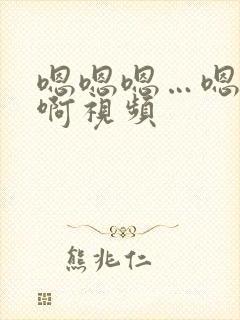 嗯嗯嗯…嗯
啊視頻
熊兆仁